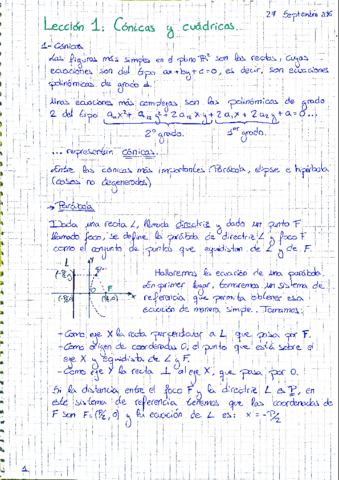 27 Septiembre 2016
Lección 1: Cónicas y cuádricas.
1- Cónicas
Las figuras más simples en el plano ℝ² son las rectas, cuyas
ecuaciones son del tipo ax+by+c=0, es decir, son ecuaciones
polinómicas de grado 1.
Unas ecuaciones más complejas son las polinómicas de grado
2 del tipo a₁₁x² + a₂₂y² + 2a₁₂xy + 2a₁x + 2a₂y + a = 0...
2º grado. 1er grado.
... representan cónicas.
Entre las cónicas más importantes: Parábola, elipse e hipérbola
(casos no degenerados)
→ Parábola
Dada una recta L, llamada directriz y dado un punto F
llamado foco, se define la parábola de directriz L y foco F
como el conjunto de puntos que equidistan de L y de F.
L
(-P/2,y)
(-P/2,0) 0 F (P/2,0) x
Hallaremos la ecuación de una parábola.
En primer lugar, tomaremos un sistema de
referencia que permita obtener esa
ecuación de manera simple. Tomamos:
- Como eje X la recta perpendicular a L que pasa por F.
- Como origen de coordenadas O, el punto que está sobre el
eje X y equidista de L y F.
- Como eje Y la recta ⊥ al eje X, que pasa por O.
Si la distancia entre el foco F y la directriz L es P, en
este sistema de referencia tenemos que las coordenadas de
F son F=(P/2, 0) y la ecuación de L es: x = -P/2
1